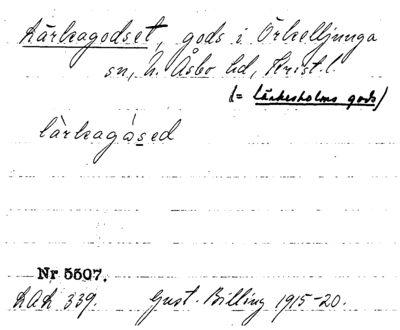 Lärkagodset, gods i Örkelljunga
sn, N. Åsbo hd, Krist. l.
(= Lärkesholms gods)
lärkagåsed
Nr 5507.
LAL 339. Gust. Billing 1915-20.